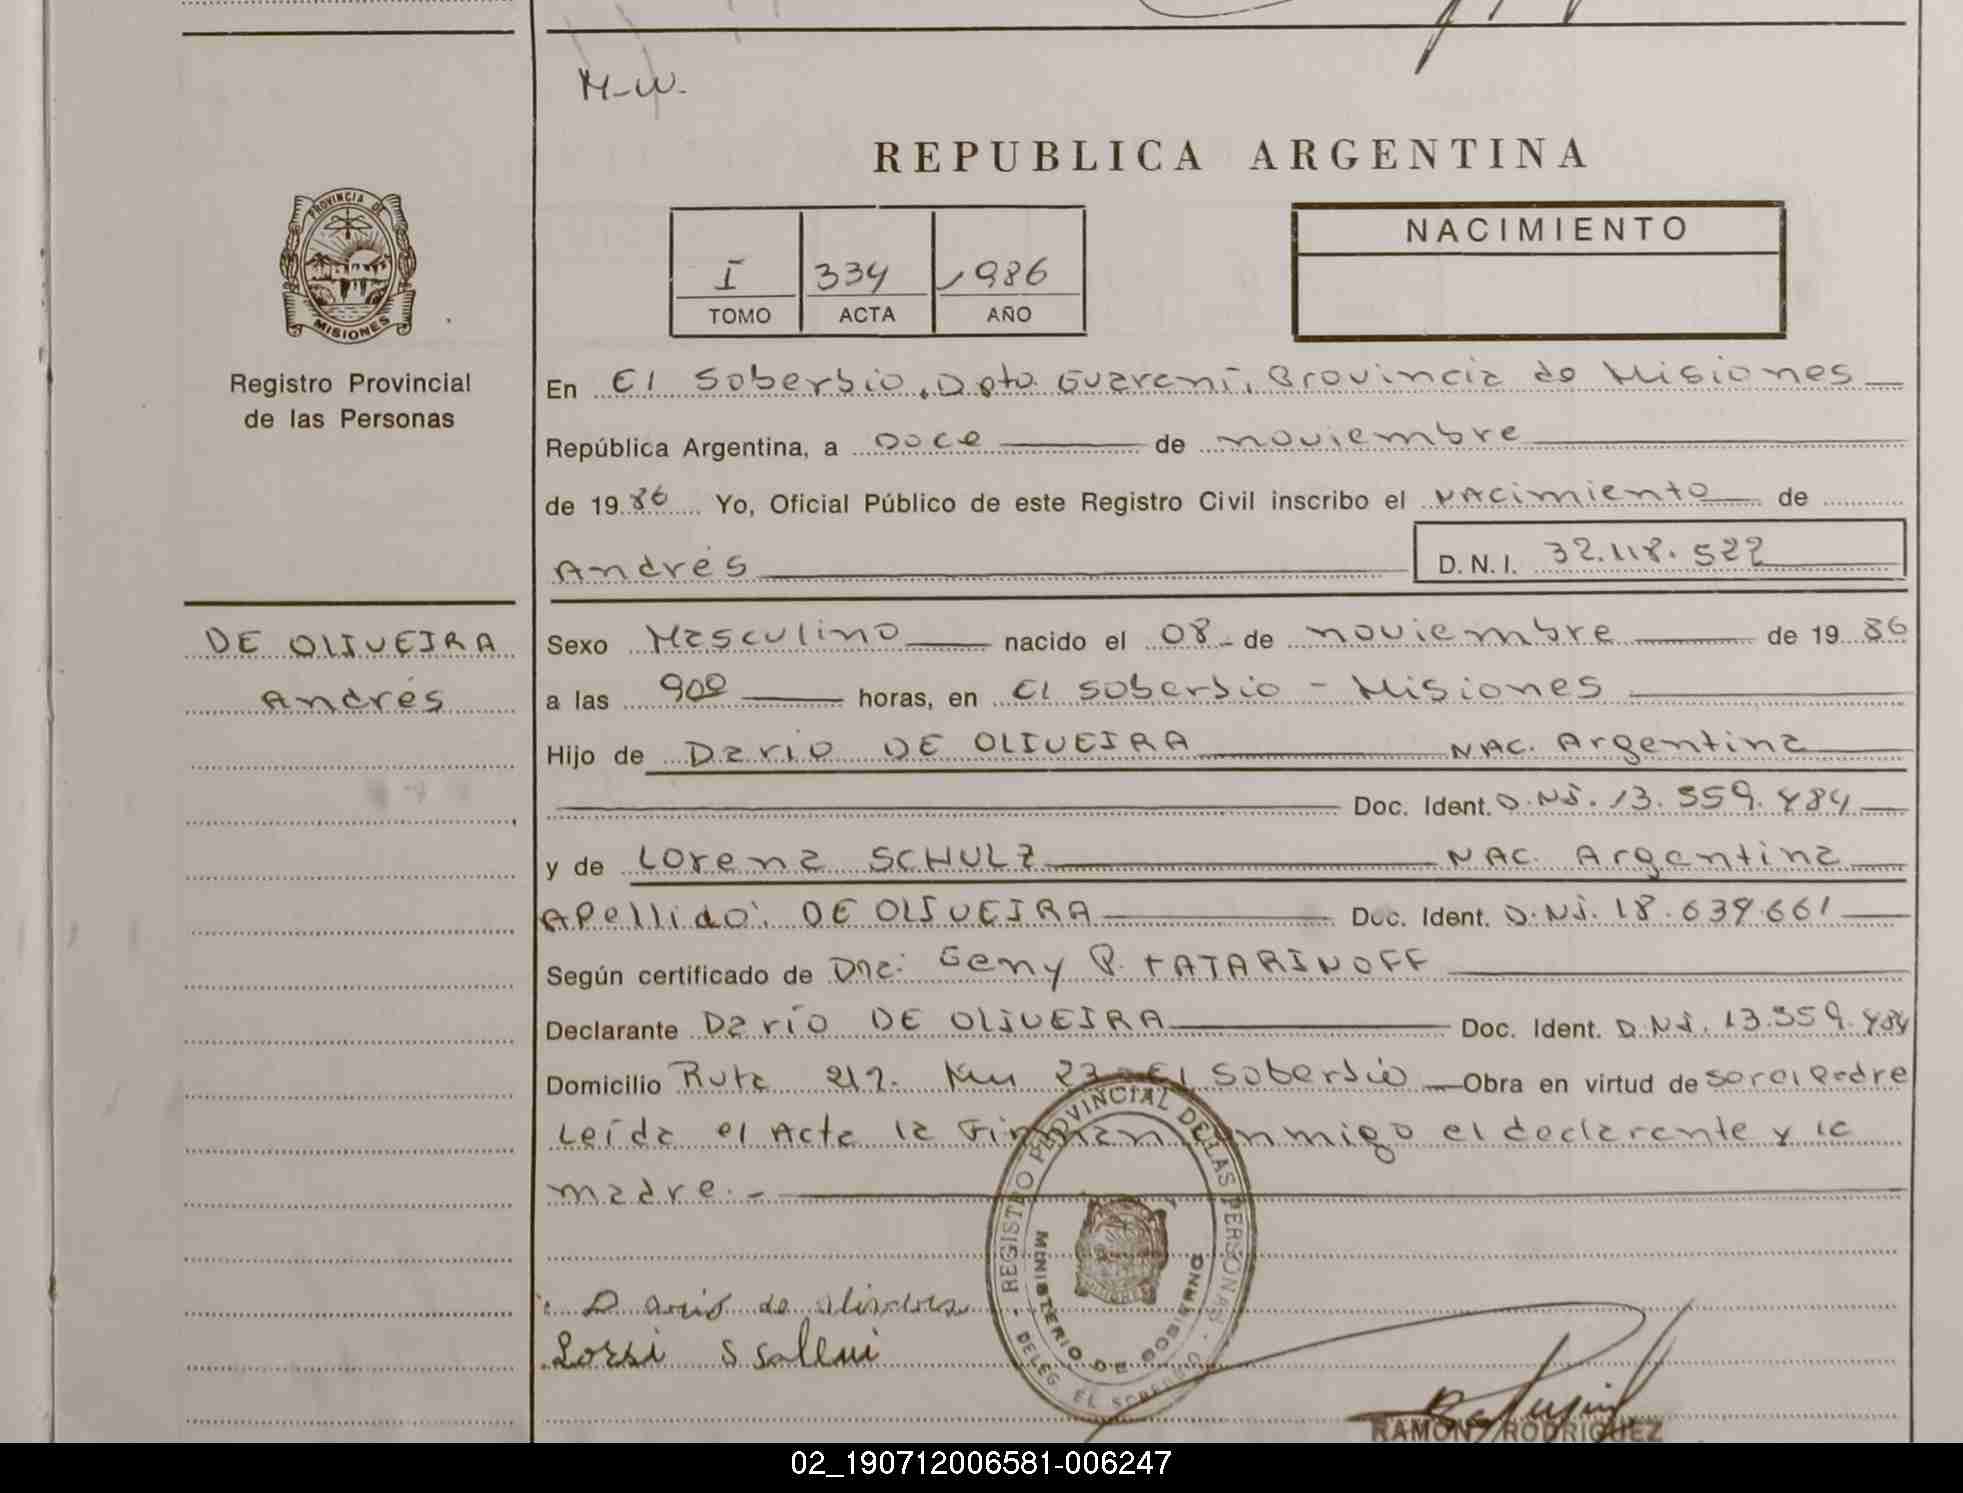 M-W.
REPUBLICA ARGENTINA
PROVINCIA DE
MISIONES
Registro Provincial
de las Personas
I 334 1986
TOMO ACTA AÑO
NACIMIENTO
En El Soberbio, Dpto. Guaraní, Provincia de Misiones
República Argentina, a Doce de noviembre
de 19 86 Yo, Oficial Público de este Registro Civil inscribo el NAcimiento de
Andrés D.N.I. 32.118.522
DE OLIVEIRA
Andrés
Sexo Masculino nacido el 08 - de noviembre de 19 86
a las 900 horas, en El Soberbio - Misiones
Hijo de Dario DE OLIVEIRA NAC. Argentina
Doc. Ident. D.NI. 13.559.484
y de Lorena SCHULZ NAC. Argentina
Apellido: DE OLIVEIRA Doc. Ident. D.NI. 18.639.661
Según certificado de Dra: Geny P. TATARINOFF
Declarante Darío DE OLIVEIRA Doc. Ident. D.NI. 13.559.484
Domicilio Ruta 212. Km 23 - El Soberbio Obra en virtud de ser el Padre
Leída el Acta la Firman conmigo el declarante y la
madre. -
REGISTRO PROVINCIAL DE LAS PERSONAS - DELEG. EL SOBERBIO -
MINISTERIO DE GOBIERNO
Dario de oliveira
RAMON RODRIGUEZ
02_190712006581-006247